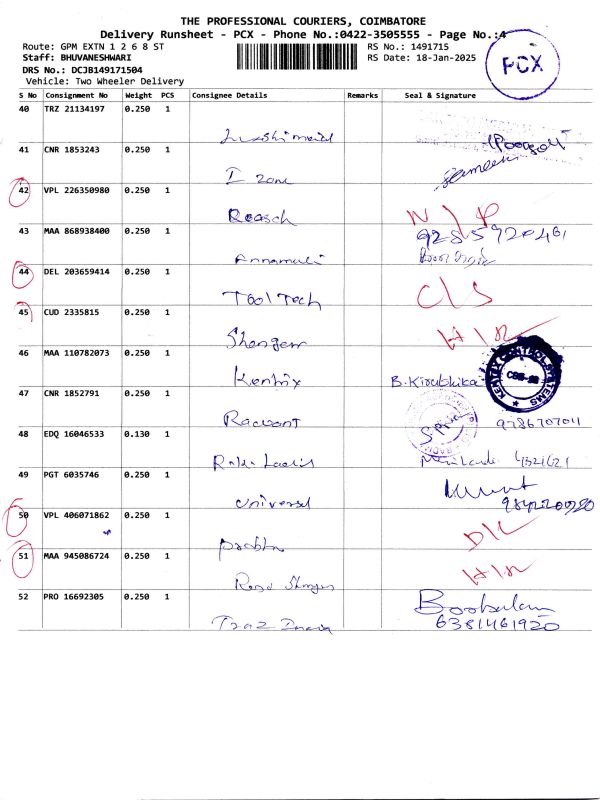 THE PROFESSIONAL COURIERS, COIMBATORE
Delivery Runsheet - PCX - Phone No.:0422-3505555 - Page No.:4
Route: GPM EXTN 1 2 6 8 ST
RS No.: 1491715
Staff: BHUVANESHWARI
RS Date: 18-Jan-2025
DRS No.: DCJB149171504
Vehicle: Two Wheeler Delivery
PCX
S No Consignment No Weight PCS Consignee Details Remarks Seal & Signature
40 TRZ 21134197 0.250 1
41 CNR 1853243 0.250 1
I zone
42 VPL 226350980 0.250 1
Reasch N/P
43 MAA 868938400 0.250 1 9285920461
Annamali
44 DEL 203659414 0.250 1
Tool Tech C/S
45 CUD 2335815 0.250 1
H/R
46 MAA 110782073 0.250 1
Kentix B. Kirubhika
KENTEX CONTROL SYSTEMS
47 CNR 1852791 0.250 1
9786707011
48 EDQ 16046533 0.130 1
49 PGT 6035746 0.250 1
Universal
50 VPL 406071862 0.250 1
Prabhu D/L
51 MAA 945086724 0.250 1
H/R
52 PRO 16692305 0.250 1
Boobalan
6381461920